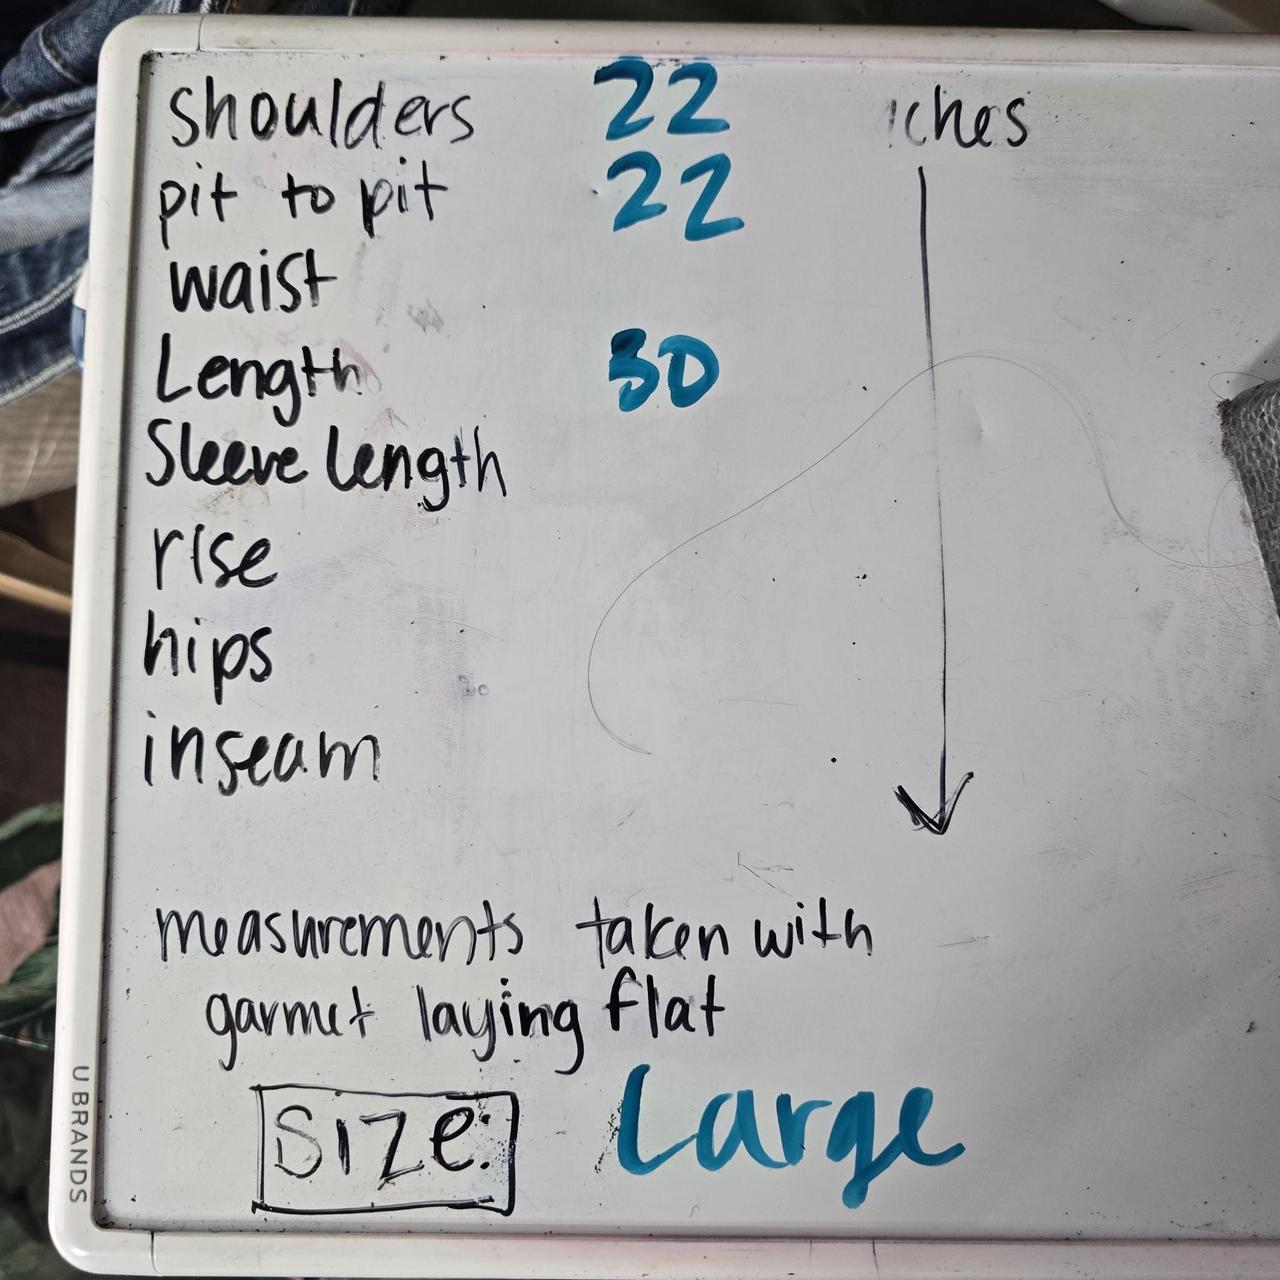 shoulders 22 iches
pit to pit 22
waist
Length 30
Sleeve length
rise
hips
inseam
measurements taken with
garmet laying flat
Size: Large
U BRANDS